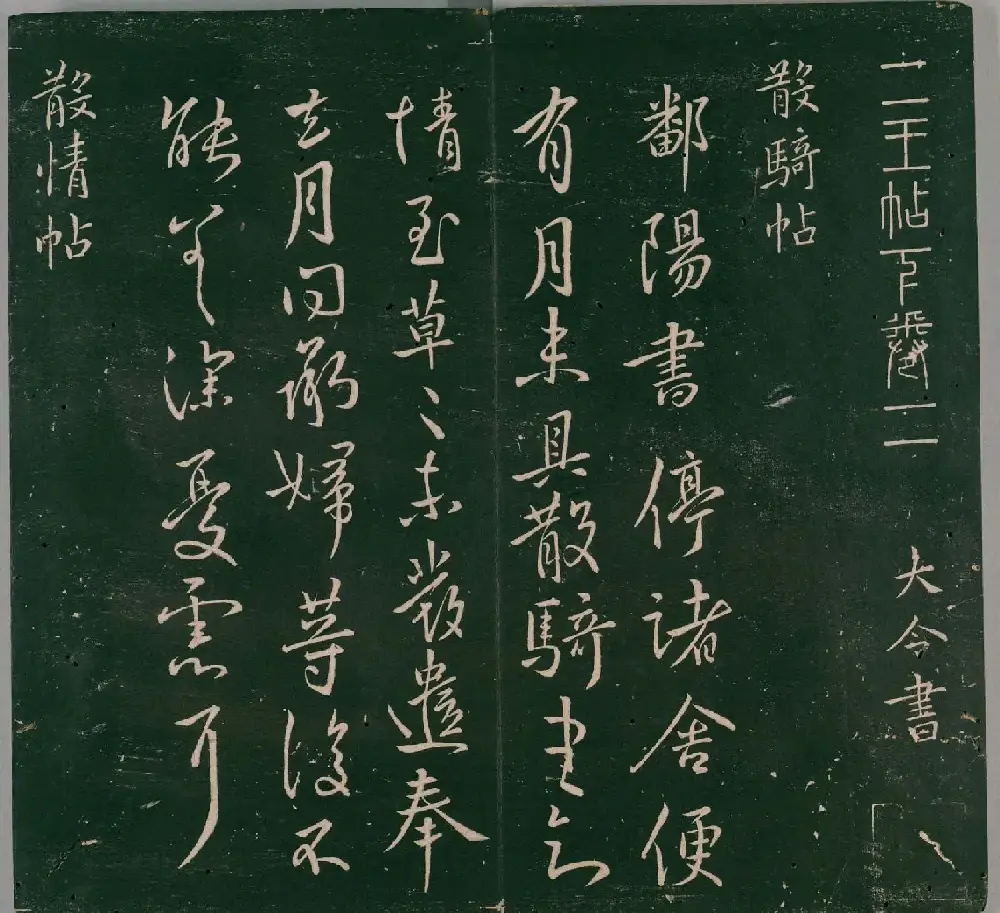 二王帖下卷二
大令書
散騎帖
鄱陽書停諸舍便
有月未具散騎書
情至草〻未裝遣奉
去月問承婦等復不
能差深憂慮耳
散情帖